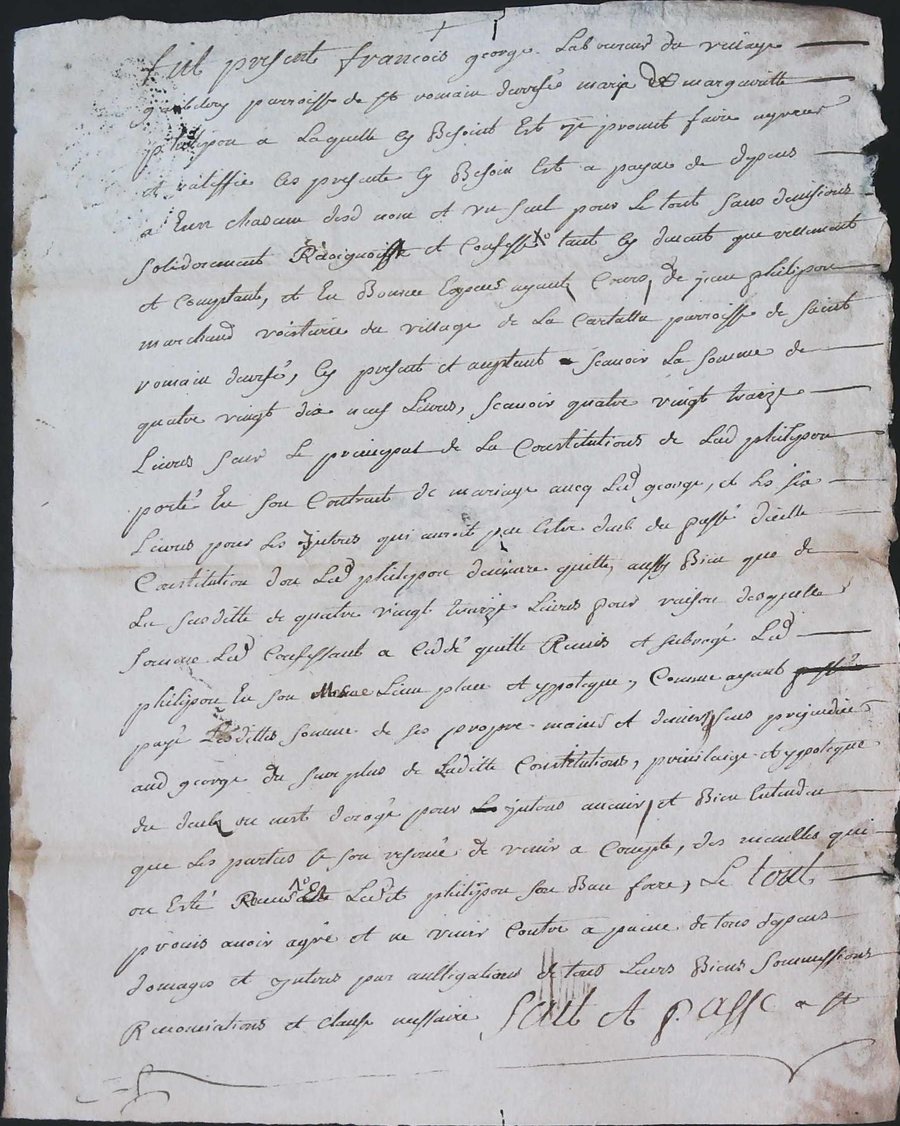 fut present francois george Laboureur du village
parroisse de st romain durfé mary de margueritte
philipon a Laquelle Besoint Est promit faire
et ratiffie Ces presente Besoin Est a payne de depens
a Eux chascun desd nom et un seul pour Le tout sans divisions
solidairement et Confesse tant que reellement
et Comptant, et En Bource ayant Cours, de jean philipon
marchand voiturie du village de La Cartalla parroisse de saint
romain durfé, present et aceptant scauoir La somme de
quatre vingt dix neuf Livres, scauoir quatre vingt treize
Livres sur Le principal de La Constitutions de Lad philipon
porté En son Contrat de mariage aueq Led george, et Les six
Livres pour Les jnteres qui auroit peu Estre dub du passé dicelle
Constitution don Led philipon demeure quitte, aussy Bien que de
La susditte de quatre vingt treize Livres pour raison desquelle
somme Led Confessant a Ceddé quitte Remis et subrogé Led
philipon En son Lieu place et ypoteque, Comme ayant
payé Lesdittes somme de ses propre mains et deniers sans prejudice
aud george du surplus de Laditte Constitutions, privilaige et ypoteque
du dub ou nest derogé pour jnteres auenir, et Bien Entendu
que Les parties se son reservé de venir a Compte, des meubles qui
on Esté Led philipon son Beau frere, Le tout
promis auoir agré et ne venir Contre a paine de tous depens
domages et jnteres par aubligations de tous Leurs Biens sommissions
Renonciations et clause nessaire fait et passe a st